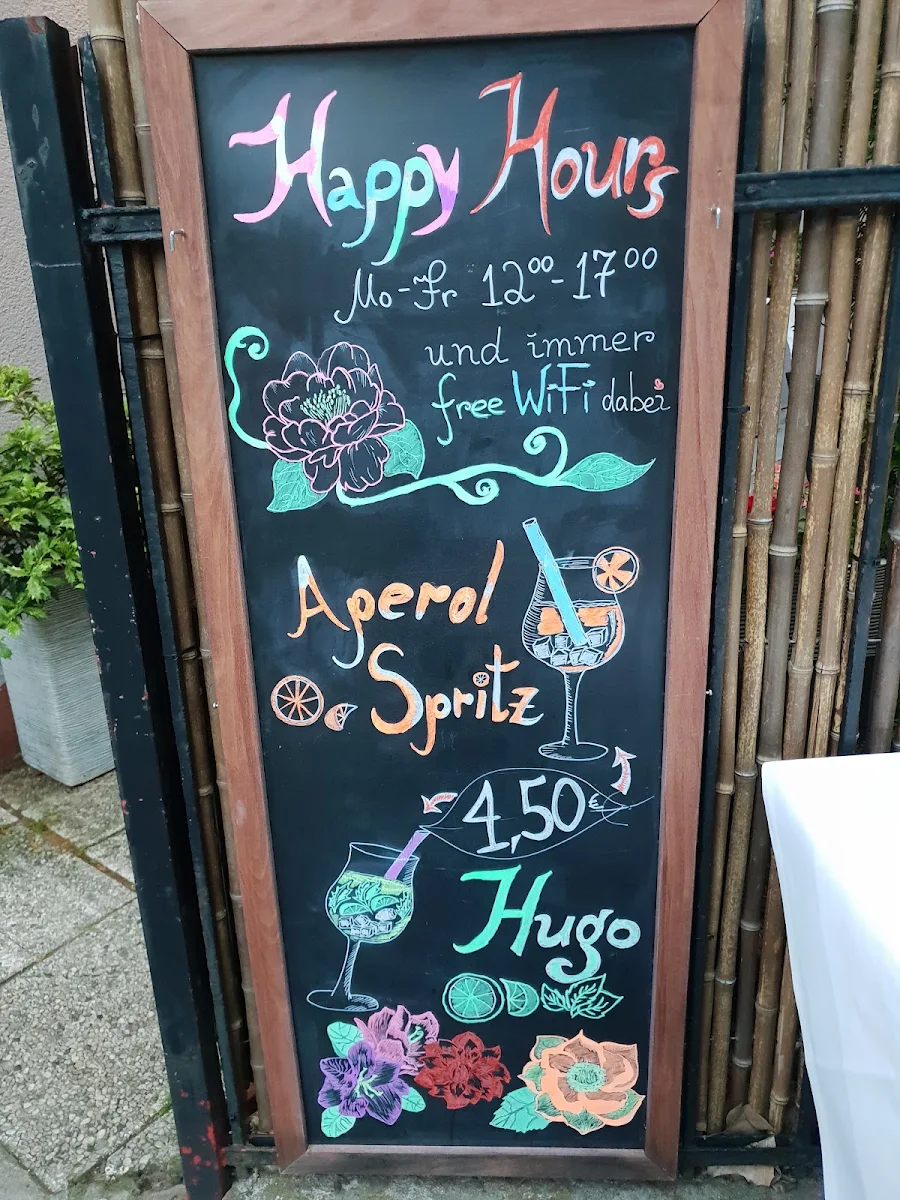 Happy Hours
Mo-Fr 12⁰⁰-17⁰⁰
und immer
free WiFi dabei
Aperol
Spritz
4,50€
Hugo